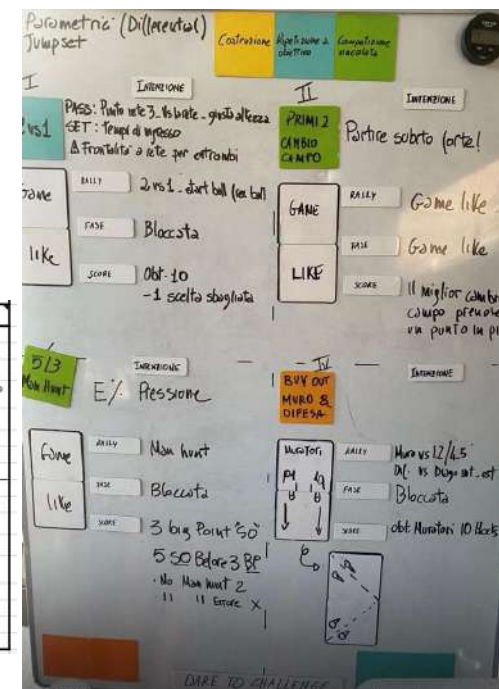 Parametric (Differential)
Jumpset
Costruzione
Ripetizione a
obiettivo
Competizione
I
INTENZIONE
2 vs 1
PASS: Punto rete 3_
SET: Tempi di ingresso
Δ Frontalità a rete per entrambi
Game
like
RALLY
2 vs 1
FASE
Bloccata
SCORE
Obt. 10
-1 scelta sbagliata
II
INTENZIONE
PRIMI 2
CAMBIO
CAMPO
Partire subito forte!
GAME
LIKE
RALLY
Game like
FASE
Game like
SCORE
Il miglior cambio
campo prende
un punto in più
5/3
Man Hunt
INTENZIONE
E% Pressione
Game
like
RALLY
Man hunt
FASE
Bloccata
SCORE
3 big Point "SO"
5 SO Before 3 BP
· No Man hunt 2
· " " Errore X
IV
INTENZIONE
BUY OUT
MURO &
DIFESA
Muratori
RALLY
Muro vs
Dif. vs Diago
FASE
Bloccata
SCORE
obt. Muratori 10 block
DARE TO CHALLENGE